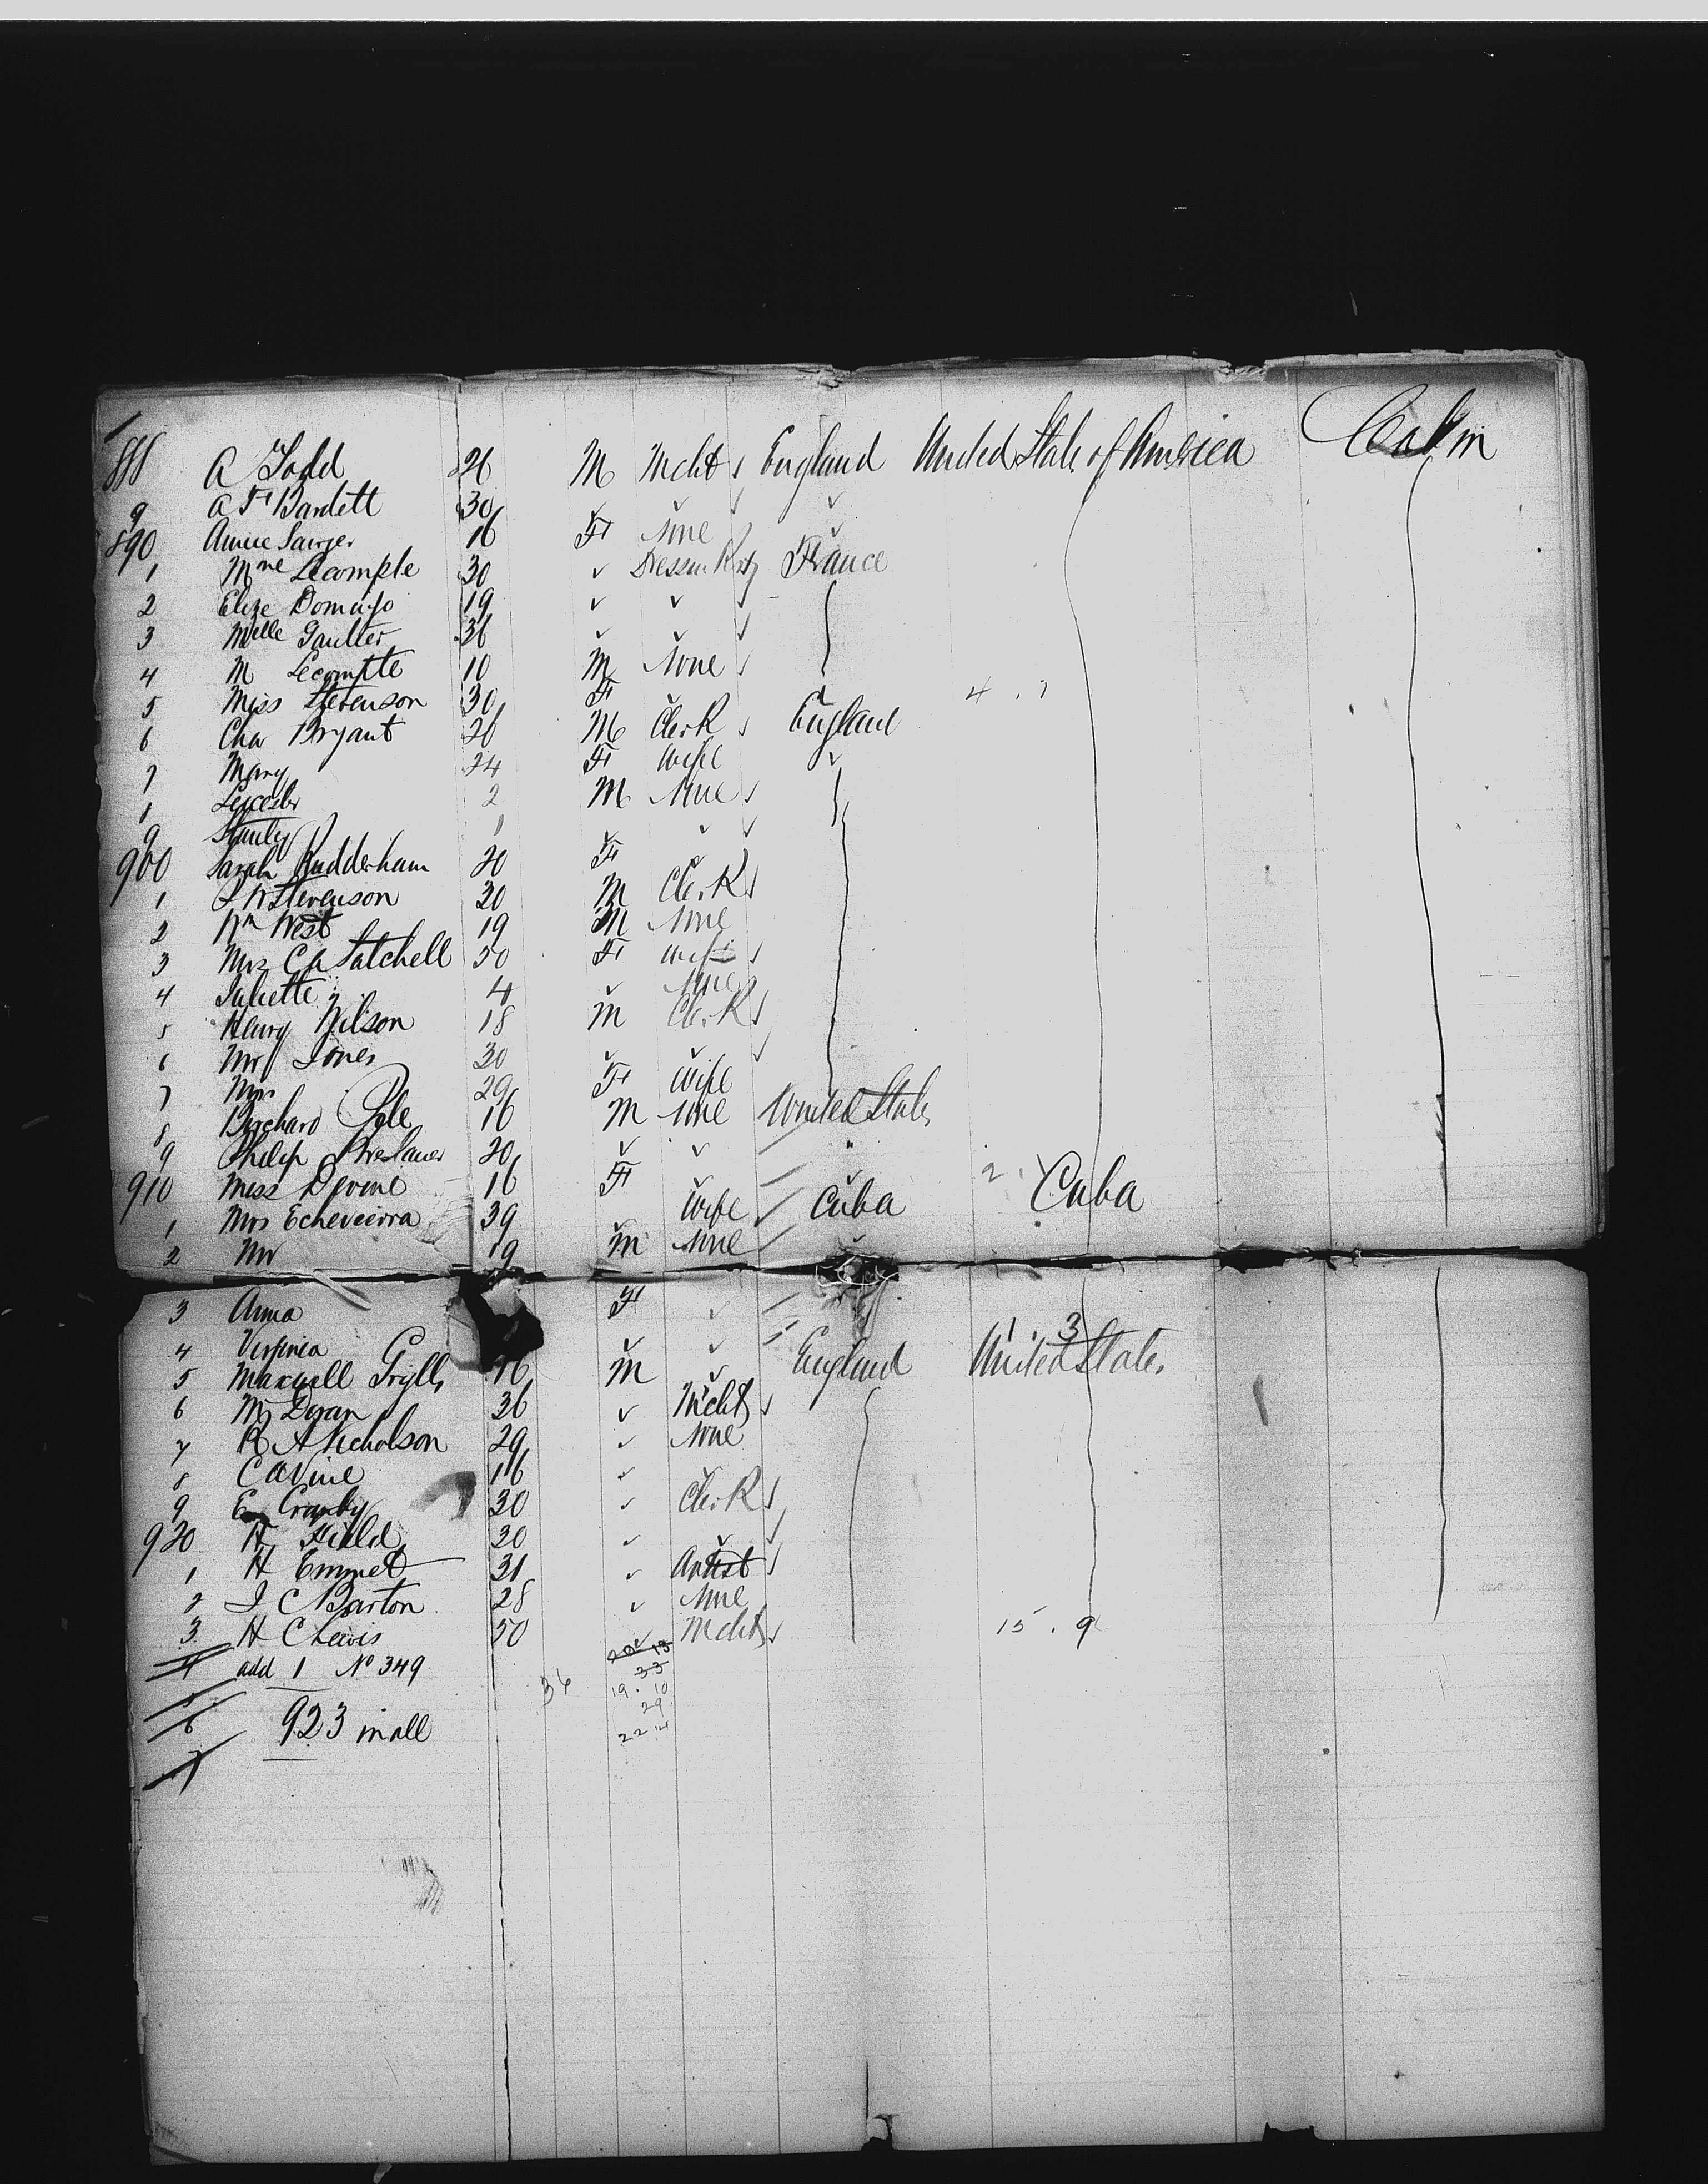 888 A Todd 26 M Mcht England United State of America Cabin
9 A F Bardett 30 ✓ ✓ ✓
890 Annie Sawyer 16 F None ✓
1 Mme Lecompte 30 ✓ France
2 Elize Domago 19 ✓ ✓
3 Melle Gaulter 36 ✓ ✓
4 M Lecompte 10 M None
5 Miss Stevenson 30 F ✓ 4
6 Cha Bryant 26 M Clerk England
7 Mary 24 F Wife ✓
8 Leicester 2 M None
9 Stanly 1 ✓ ✓
900 Sarah Rudderham 20 F ✓
1 Stevenson 30 M Clerk
2 Wm West 19 M None
3 Mrs C A Satchell 50 F Wife
4 Juliette 4 ✓ None
5 Henry Wilson 18 M Clerk
6 Mr Jones 30 ✓ ✓
7 Mrs 29 F Wife
8 Burchard Cole 16 M None United State
9 Philip Breslauer 20 ✓ ✓ "
910 Miss Devine 16 F ✓ ✓ 2
1 Mrs Echeveerra 39 Wife Cuba Cuba
2 Mr 19 M None ✓
3 Anna F ✓
4 Virginia ✓ ✓ 1 . 3
5 Maxwell Grylls 16 M ✓ England United States
6 M Doran 36 ✓ Mcht
7 R A Nicholson 29 ✓ None
8 C A Vine 16 ✓ ✓
9 E Crosby 30 ✓ Clerk
920 H Field 30 ✓ ✓
1 H Emmet 31 ✓ Artist
2 J C Barton 28 ✓ None
3 H C Lewis 50 ✓ Mcht 15 . 9
4 add 1 No 349
20 13
33
36 19 . 10
29
5
6 923 in all
22 14
7